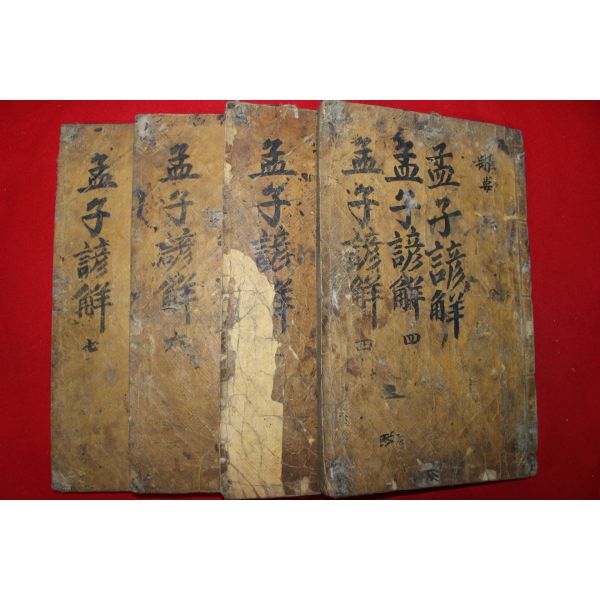 孟子諺解
孟子諺解 四
孟子諺解 四
孟子諺解
孟子諺解 六
孟子諺解 七